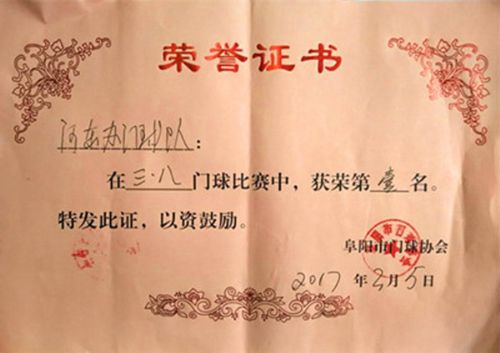 荣誉证书
河东办门球队：
在三·八门球比赛中，获荣第壹名。
特发此证，以资鼓励。
阜阳市门球协会
2017年3月5日